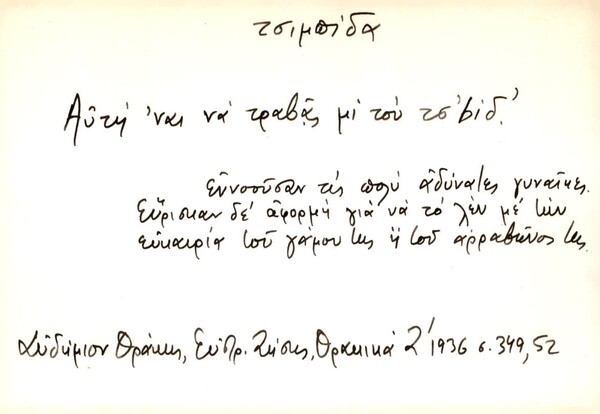 τσιμπίδα
Αὕτη 'ναι νά τραβᾷς μί τού τσ'bίδ'
εὐνοοῦσαν τις πολύ ἀδύνατες γυναῖκες.
Εὕρισκαν δέ ἀφορμή γιά νά τό λέν μέ τήν
εὐκαιρία τοῦ γάμου της ἤ τοῦ ἀρραβῶνος της.
Διδ/μιον Θράκης, Εὐστρ. Ζήσης, Θρακικά Ζ' 1936 σ. 349, 52